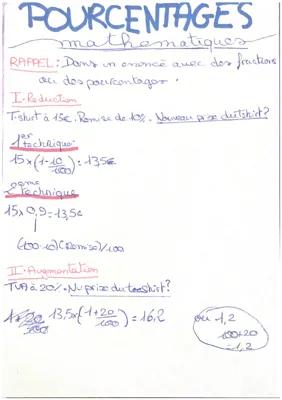 POURCENTAGES
mathématiques
RAPPEL: Dans un exercice avec des fractions
ou des pourcentages.
I. Réduction
T-shirt à 15€. Remise de 10%. Nouveau prix du tshirt?
1er technique:
15×(1-10/100)= 13,5€
2ème technique
15×0,9=13,5€
(100-10)(remise)/100
II. Augmentation
TVA à 20%. Nv prix du teeshirt?
13,5×(1+20/100)= 16,2
où 1,2
100+20
=1,2